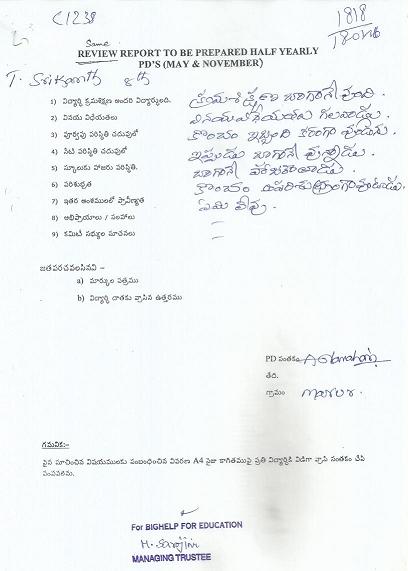 C1238
1818
T80116
Same
REVIEW REPORT TO BE PREPARED HALF YEARLY
PD'S (MAY & NOVEMBER)
T. Srikanth 8th
1) విద్యార్థి క్రమశిక్షణ అందరి విద్యార్థులది. క్రమశిక్షణ బాగానే వుంది.
2) వినయ విధేయతలు వినయవిధేయతలు గలవాడు.
3) పూర్వపు పరిస్థితి చదువులో కొంచం ఇబ్బంది కరంగా వుండెను.
4) నేటి పరిస్థితి చదువులో ఇప్పుడు బాగానే వున్నాడు.
5) స్కూలుకు హాజరు పరిస్థితి. బాగానే
6) పరిశుభ్రత కొంచం అపరిశుభ్రంగా వుంటాడు.
7) ఇతర అంశములలో ప్రావీణ్యత ఏమి లేవు.
8) అభిప్రాయాలు / సలహాలు –
9) కమిటీ సభ్యుల సూచనలు –
జతపరచవలసినవి –
a) మార్కుల పత్రము
b) విద్యార్థి దాతకు వ్రాసిన ఉత్తరము
PD సంతకం
తేది.
గ్రామం
గమనిక:-
పైన సూచించిన విషయములకు సంబంధించిన వివరణ A4 సైజు కాగితముపై ప్రతి విద్యార్థికి విడిగా వ్రాసి సంతకం చేసి
పంపవలెను.
For BIGHELP FOR EDUCATION
M. Sarojini
MANAGING TRUSTEE